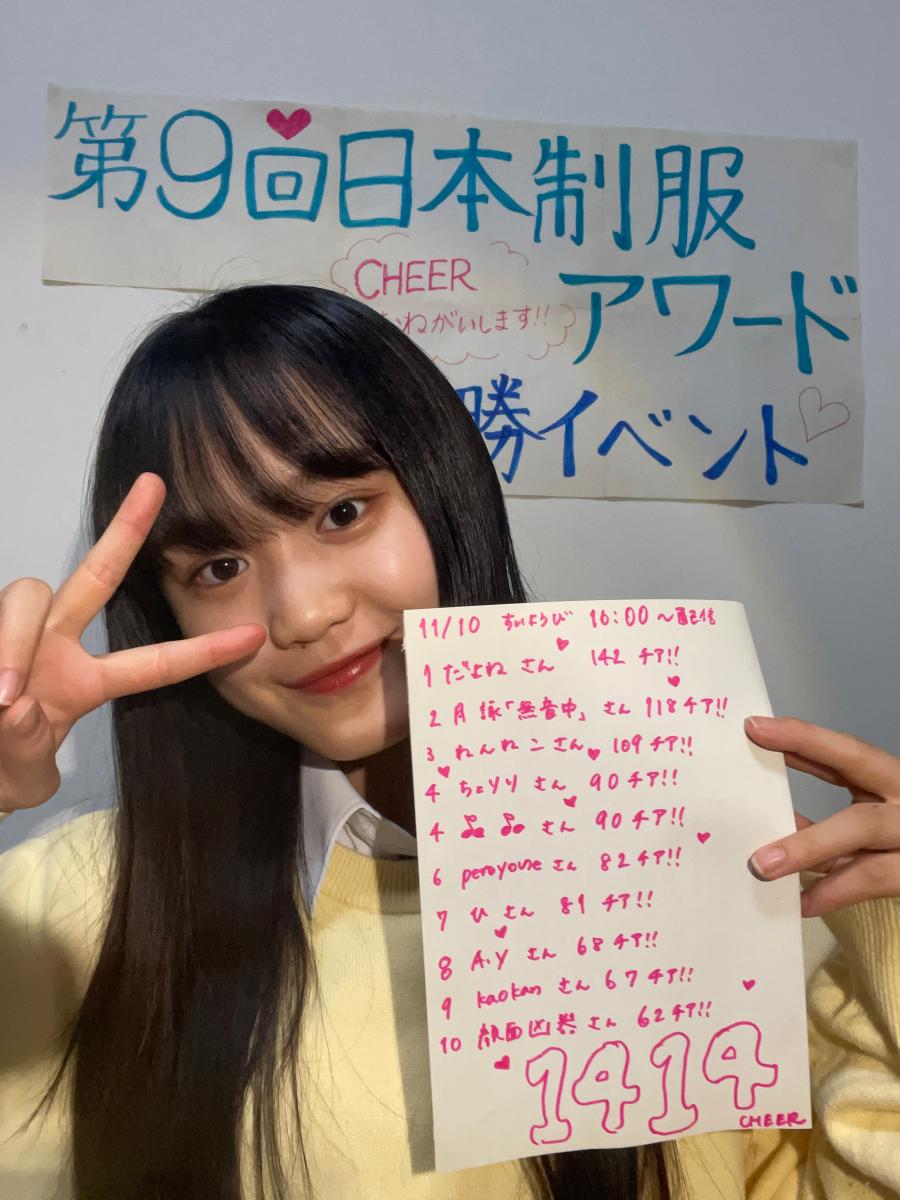 第9回日本制服
アワード
CHEER
おねがいします!!
勝イベント
11/10 すいようび 16:00～配信
1 だよね さん 142 チア!!
2 月詠「無音中」さん 118チア!!
3 ねんねこさん 109チア!!
4 ちょりり さん 90チア!!
4 さん 90チア!!
6 peroyone さん 82チア!!
7 ひ さん 81 チア!!
8 A.Y さん 68チア!!
9 kaokan さん 67チア!!
10 顔面凶器 さん 62チア!!
1414
CHEER